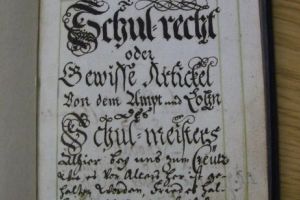 Schul recht
oder
Gewisse Artickel
Von dem Ampt und Lohn
des
Schul-meisters
Allhier bey uns zum Creutz
wie es von Alters her ist ge
halten worden,